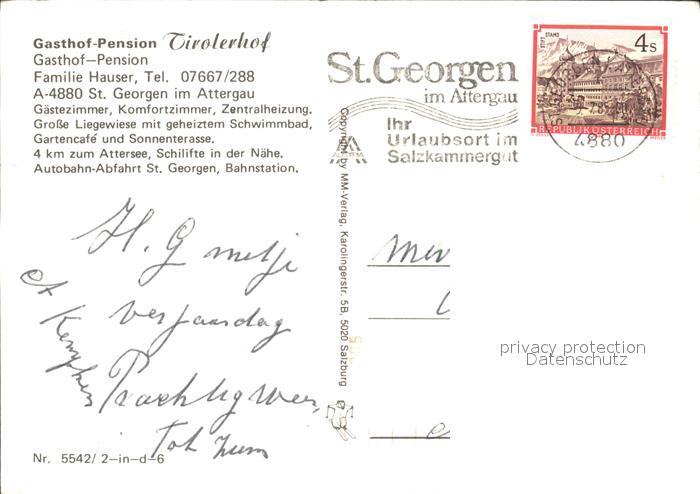 Gasthof-Pension Tirolerhof
Gasthof—Pension
Familie Hauser, Tel. 07667/288
A-4880 St. Georgen im Attergau
Gästezimmer, Komfortzimmer, Zentralheizung.
Große Liegewiese mit geheiztem Schwimmbad,
Gartencafé und Sonnenterasse.
4 km zum Attersee, Schilifte in der Nähe.
Autobahn-Abfahrt St. Georgen, Bahnstation.
St. Georgen
im Attergau
Ihr
Urlaubsort im
Salzkammergut
STIFT STAMS
4 S
REPUBLIK ÖSTERREICH
4880
Copyright by MM-Verlag, Karolingerstr. 5B, 5020 Salzburg
H. G
verjaardag
Prachtig weer,
Tot
privacy protection
Datenschutz
Nr. 5542/ 2—in—d—6